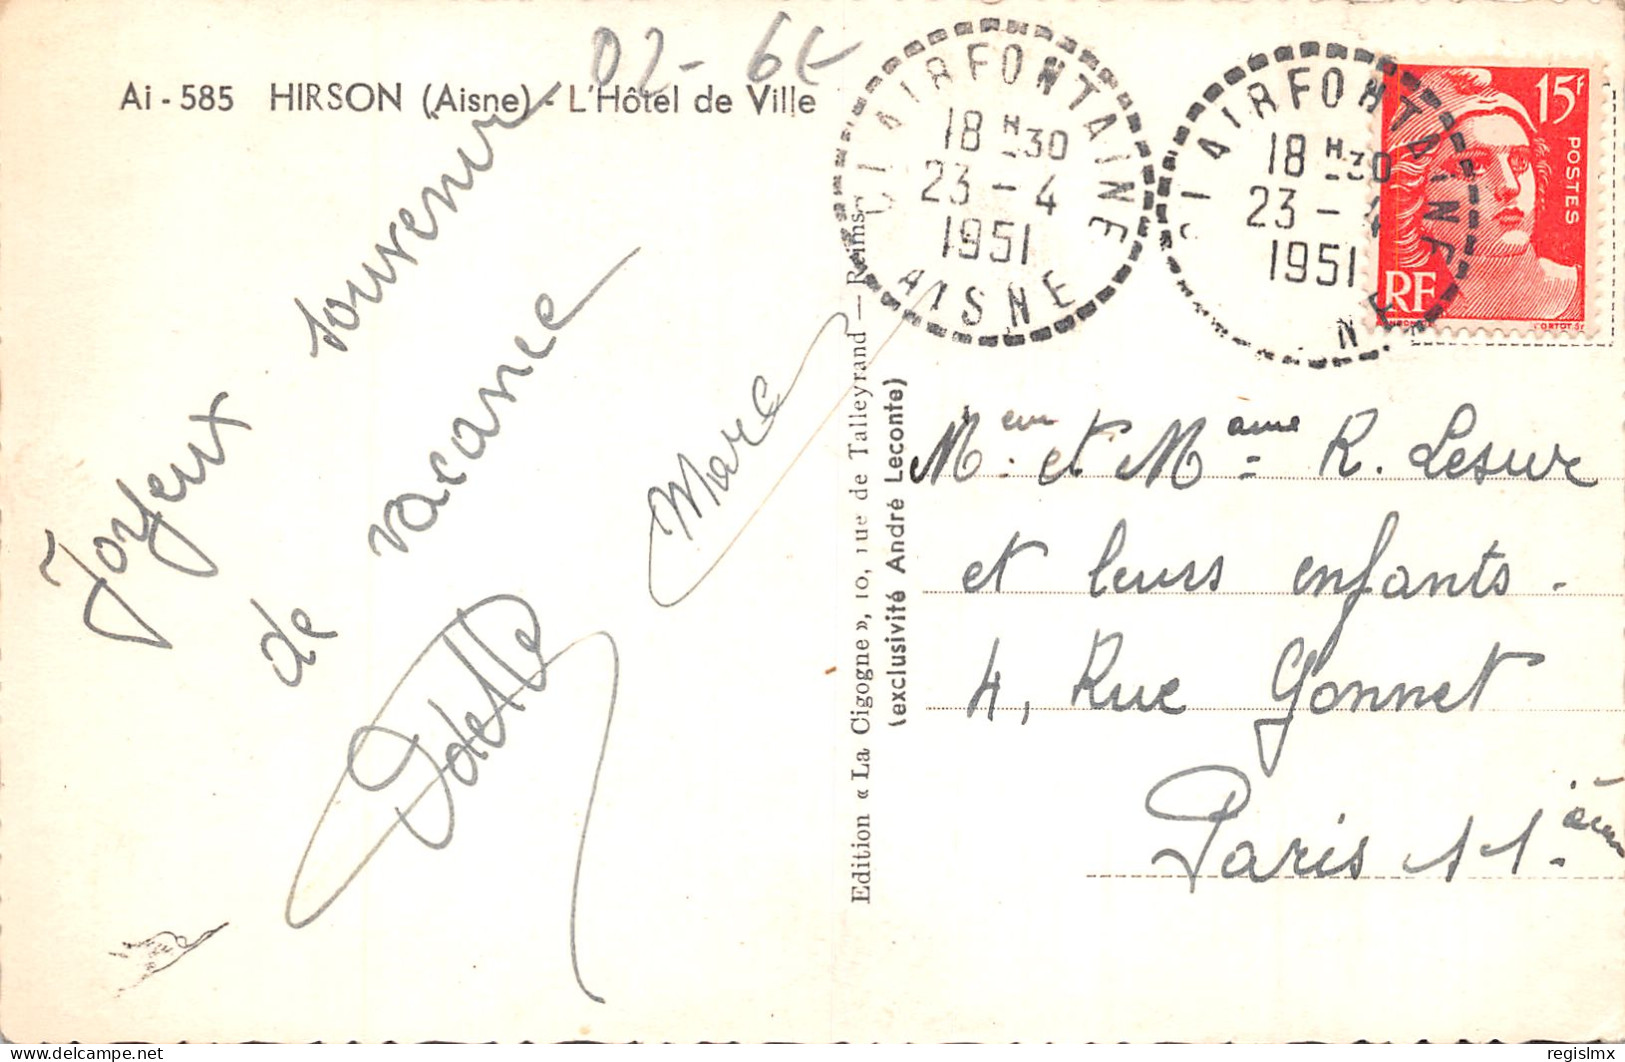 02-6
Ai - 585 HIRSON (Aisne) - L'Hôtel de Ville
Joyeux souvenir
de vacance
Odette
Marc
Edition « La Cigogne », 10, rue de Talleyrand — Reims
(exclusivité André Leconte)
CLAIRFONTAINE
18 H 30
23 - 4
1951
AISNE
CLAIRFONTAINE
18 H 30
23 - 4
1951
15F
POSTES
RF
Meur et Mame R. Lesur
et leurs enfants.
4, Rue Gonnet
Paris 11.ème
delcampe.net
regislmx